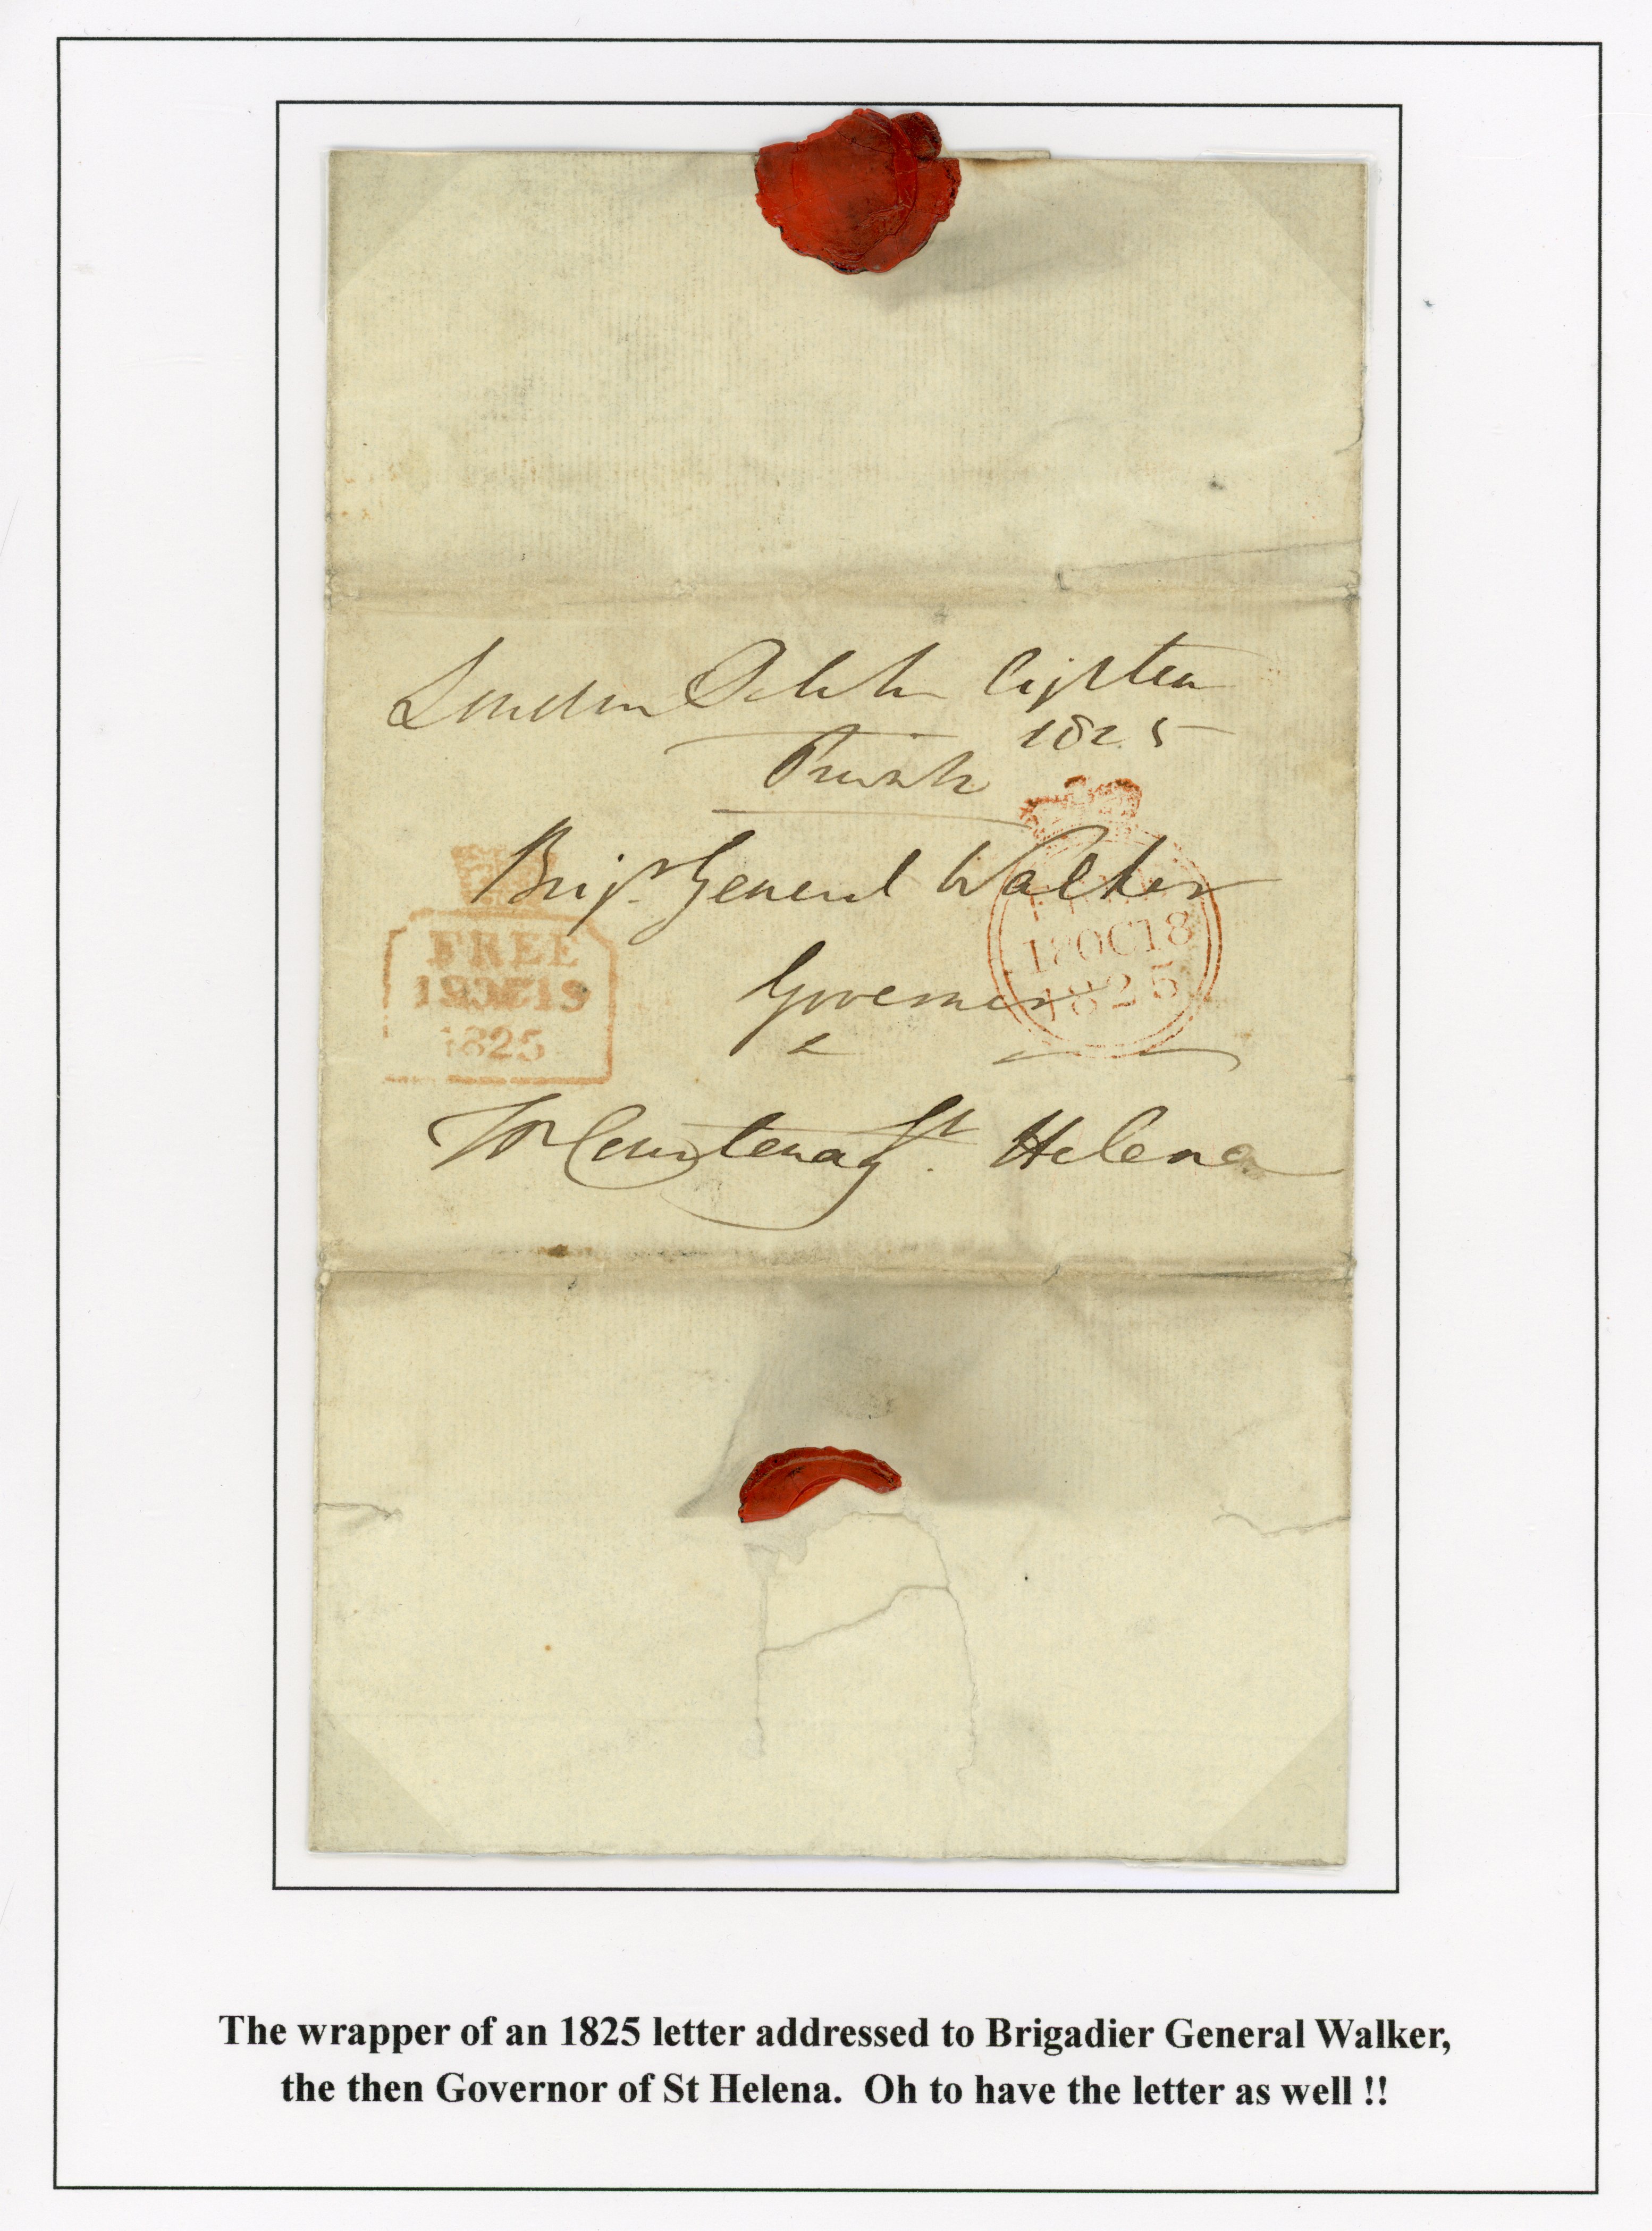 London October Eighteen
1825
Private
Brigr General Walker
Governor
&
Wm Courtenay St. Helena
FREE
19OC19
1825
18OC18
1825
The wrapper of an 1825 letter addressed to Brigadier General Walker,
the then Governor of St Helena. Oh to have the letter as well !!